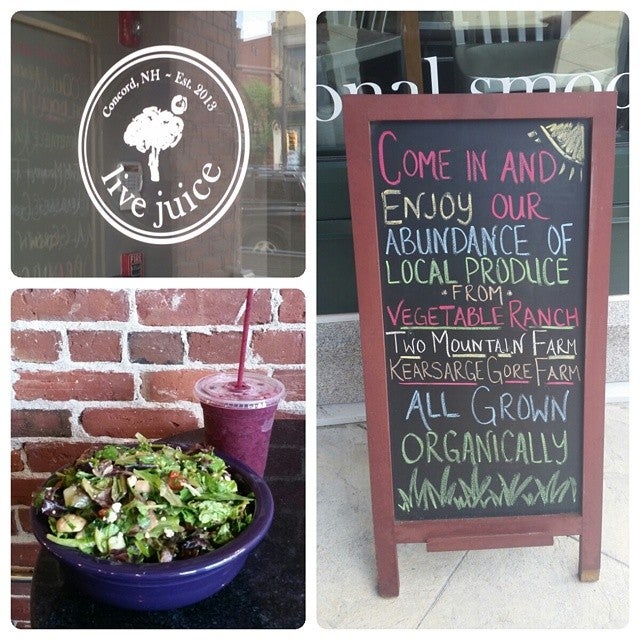 Concord, NH ~ Est. 2013
live juice
onal smoo
COME IN AND
ENJOY OUR
ABUNDANCE OF
LOCAL PRODUCE
·FROM·
VEGETABLE RANCH
TWO MOUNTAIN FARM
KEARSARGE GORE FARM
ALL GROWN
ORGANICALLY